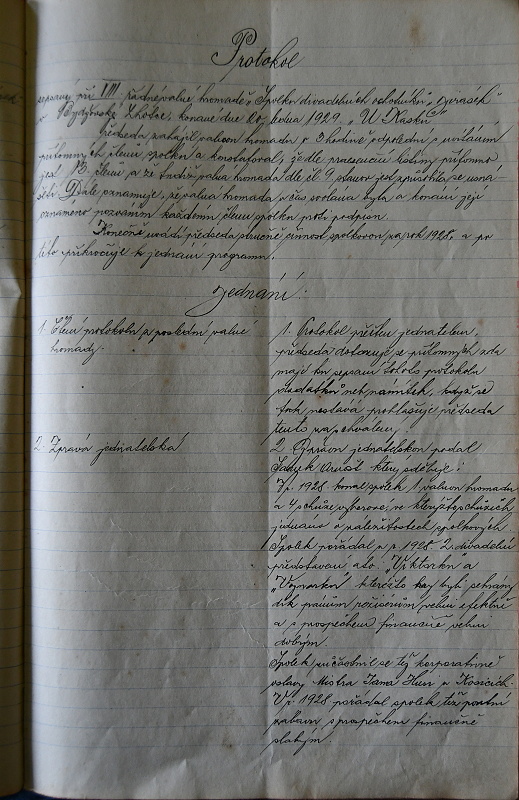 Protokol
sepsaný při VIII. řádné valné hromadě „Spolku divadelních ochotníků „Jirásek"
v Pozdyňské Lhotce, konané dne 20. ledna 1929 „U Nasků"
Předseda zahájil valnou hromadu v 3 hodině odpolední s uvítáním
přítomných členů spolku a konstatoval, že dle praesenční listiny přítomno
jest 13 členů a že tudíž valná hromada dle čl. 9. stanov jest způsobilá se usná-
šeti. Dále oznamuje, že valná hromada včas svolána byla a konání její
oznámeno pozváním každému členu spolku proti podpisu.
Konečně uvádí předseda stručně činnost spolkovou za rok 1928, a po
této přikročuje k jednání programu.
Jednání:
1. Čtení protokolu z poslední valné
hromady.
1. Protokol přečten jednatelem,
předseda dotazuje se přítomných zda
mají ku sepsání tohoto protokolu
dodatků neb námitek, když se
tak nestává prohlašuje předseda
tento za schválený.
2. Zpráva jednatelská
2. Zprávu jednatelskou podal
který sděluje:
V r. 1928 konal spolek 1 valnou hromadu
a 4 schůze výborové, ve kterýchžto schůzích
jednáno o náležitostech spolkových.
Spolek pořádal v r. 1928. 2. divadelní
představení a to: „Viktorka" a
„Vojnarka" kteréžto hry byly sehrány
dík pánům režisérům velmi efektně
a s prospěchem finančně velmi
dobrým.
Spolek zúčastnil se též korporativně
oslavy Mistra Jana Husi v Kosicích.
V r. 1928 pořádal spolek též poutní
zábavu s prospěchem finančně
slabým.